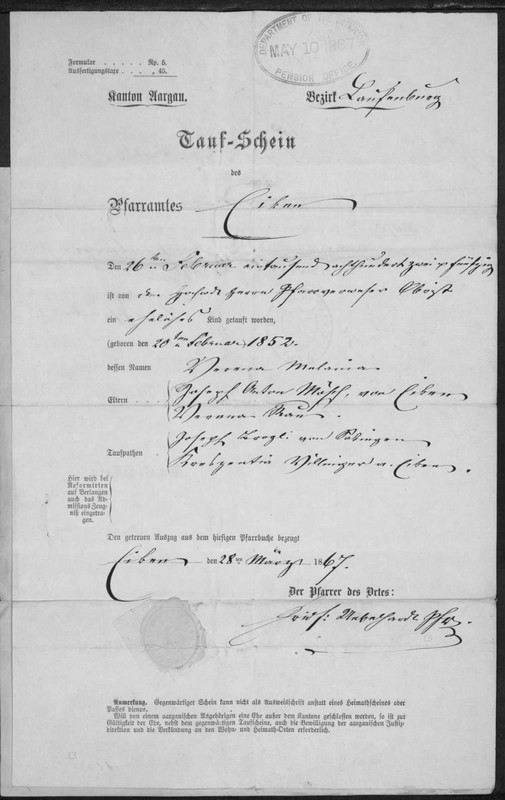 DEPARTMENT OF THE INTERIOR
MAY 10 1867
PENSION OFFICE.
Formular . . . . . Rp. 5.
Ausfertigungstaxe . . . „ 45.
Kanton Aargau. Bezirk Laufenburg
Tauf-Schein
des
Pfarramtes Eiken
Den 26ten Februar eintausend achthundert zwei & fünfzig
ist von dem Hochw. Herrn Pfarrverweser Obrist
ein eheliches Kind getauft worden,
(geboren den 20ten Februar) 1852.
dessen Namen Verena Melania
Eltern . . . . Joseph Anton Müsch, von Eiken
Verena
Taufpathen Joseph von
Villinger v. Eiken.
Hier wird bei
Reformirten
auf Verlangen
auch das Ad-
missions Zeug-
niß eingetra-
gen.
Den getreuen Auszug aus dem hiesigen Pfarrbuche bezeugt
Eiken den 28ten März 1867.
Der Pfarrer des Ortes:
Pfr.
Anmerkung. Gegenwärtiger Schein kann nicht als Ausweisschrift anstatt eines Heimathscheines oder
Passes dienen.
Will von einem aargauischen Angehörigen eine Ehe außer dem Kantone geschlossen werden, so ist zur
Gültigkeit der Ehe, nebst dem gegenwärtigen Taufscheine, auch die Bewilligung der aargauischen Justiz-
direktion und die Verkündung an den Wohn- und Heimath-Orten erforderlich.